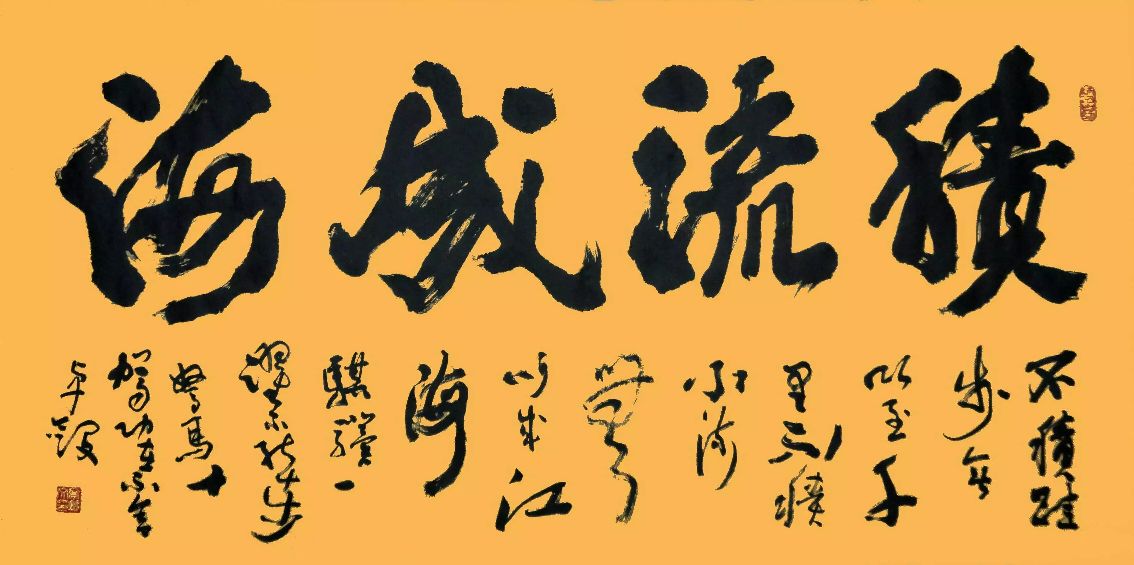 積流成海
不積跬
步无
以至千
里不積
小流
無
以成江
海
騏驥一
躍不能十步
駑馬十
駕功在不舍